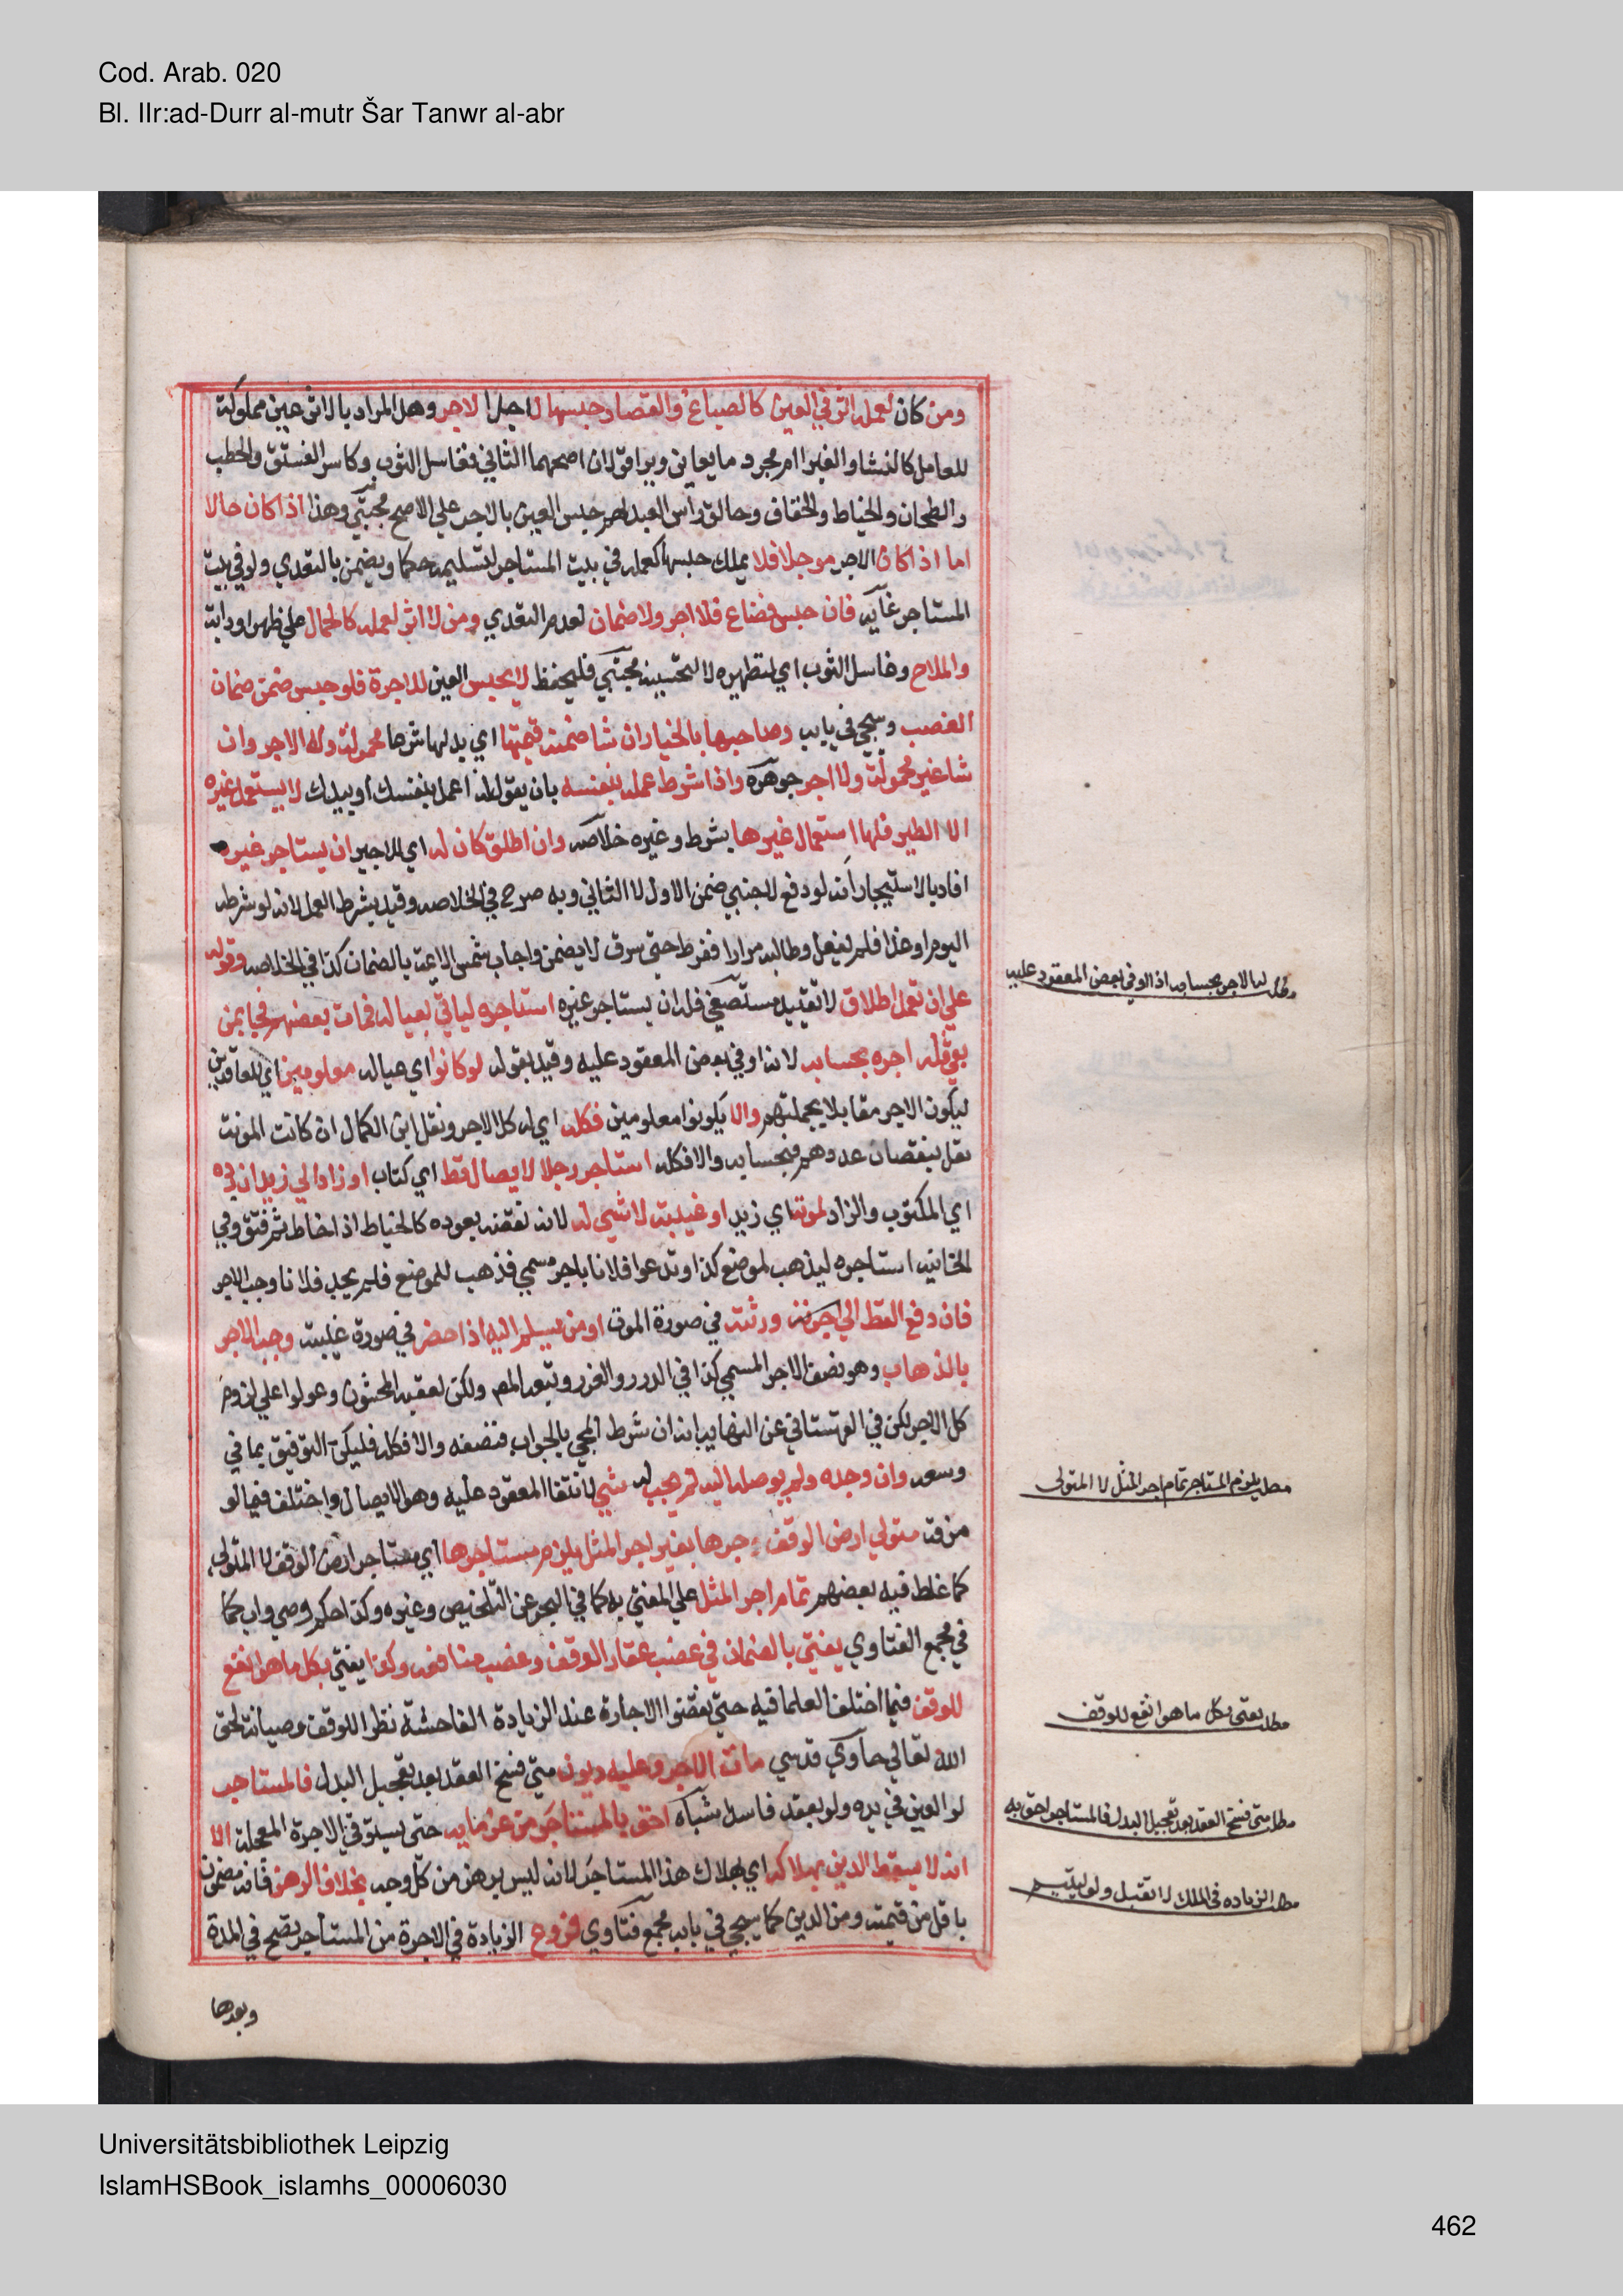 Cod. Arab. 020
Bl. IIr:ad-Durr al-mutr Šar Tanwr al-abr
ومن كان لعمله اثر في العين كالصباغ والقصار حبسها لاجل الاجر وهل المراد بالاثر عين مملوكة
للعامل كالنشا والغرا ام مجرد ما يعاين ويرا قولان اصحهما الثاني فغاسل الثوب وكاسر الفستق والحطب
والطحان والخياط والخفاف وحالق راس العبد لهم حبس العين بالاجر علي الاصح مجتبي وهذا اذا كان حالا
اما اذا كان الاجر موجلا فلا يملك حبسها كعمله في بيت المستاجر لتسليمه حكما ويضمن بالتعدي ولو في بيت
المستاجر غايه فان حبس فضاع فلا اجر ولا ضمان لعدم التعدي ومن لا اثر لعمله كالحمال علي ظهر او دابة
والملاح وغاسل الثوب اي لتطهيره لا لتحسينه مجتبي فليحفظ لا يحبس العين للاجرة فلو حبس ضمن ضمان
الغصب وسيجي في بابه وصاحبها بالخيار ان شا ضمنه قيمتها اي بدلها شرعا محمولة وله الاجر وان
شا غير محمولة ولا اجر جوهرة واذا شرط عمله بنفسه بان يقول له اعمل بنفسك او بيدك لا يستعمل غيره
الا الظير فلها استعمال غيرها بشرط وغيره خلاصه وان اطلق كان له اي للاجير ان يستاجر غيره
افاد بالاستيجار انه لو دفع لاجنبي ضمن الاول لا الثاني وبه صرح في الخلاصه وقيد بشرط العمل لانه لو شرطه
اليوم او غدا فلم يفعل وطالبه مرارا ففرط حتي سرق لا يضمن واجاب شمس الايمة بالضمان كذا في الخلاصه وقوله
علي ان تعمل اطلاق لا تقييد مستصفي فله ان يستاجر غيره استاجره لياتي بعياله فمات بعضهم فجا بمن
بقي فله اجره بحسابه لانه اوفي بعض المعقود عليه وقيد بقوله لو كانوا اي عياله معلومين اي للعاقدين
ليكون الاجر مقابلا بجملتهم والا يكونوا معلومين فكله اي له كل الاجر ونقل ابن الكمال ان كانت المونة
تقل بنقصان عددهم فبحسابه والا فكله استاجر رجلا لايصال قط اي كتاب او زاد الي زيد ان رده
اي المكتوب والزاد لموته اي زيد او غيبته لا شي له لانه نقضه بعوده كالخياط اذا خاط ثم فتق وفي
الخانيه استاجره ليذهب لموضع كذا ويدعو فلانا باجر مسمي فذهب للموضع فلم يجد فلانا وجب الاجر
فان دفع القط الي ورثته في صورة الموت او من يسلم اليه اذا حضر في صورة غيبته وجب الاجر
بالذهاب وهو نصف الاجر المسمي كذا في الدرر والغرر وتبعه المص ولكن تعقبه المحشون وعولوا علي لزوم
كل الاجر لكن في القهستاني عن النهايه انه ان شرط المجي بالجواب فنصفه والا فكله فليكن التوفيق بما في
وسعه وان وجده ولم يوصله اليه لم يجب له شي لانتفا المعقود عليه وهو الايصال واختلف فيما لو
مزقه متولي ارض الوقف اجرها بغير اجر المثل يلزم مستاجرها اي مستاجر ارض الوقف لا المتولي
كما غلط فيه بعضهم تمام اجر المثل علي المفتي به كما في البحر عن التلخيص وغيره وكذا حكم وصي واب كما
في مجمع الفتاوي يفتي بالضمان في غصب عقار الوقف وغصب منافعه وكذا يفتي بكل ما هو انفع
للوقف فيما اختلف العلما فيه حتي نقضوا الاجارة عند الزيادة الفاحشة نظرا للوقف وصيانة لحق
الله تعالي حاوي قدسي مات الاجر وعليه ديون متي فسخ العقد بعد تعجيل البدل فالمستاجر
لو العين في يده ولو بعقد فاسد شباه احق بالمستاجر من غرمايه حتي يستوفي الاجرة المعجلة الا
انه لا يسقط الدين بهلاكه اي بهلاك هذا المستاجر لانه ليس برهن من كل وجه بخلاف الرهن فانه مضمون
باقل من قيمته ومن الدين كما سيجي في بابه مجمع فتاوي فروع الزيادة في الاجرة من المستاجر تصح في المدة
وبعدها
مطلب له الاجر بحسابه اذا اوفي بعض المعقود عليه
مطلب يلزم المستاجر تمام اجر المثل لا المتولي
مطلب يفتي بكل ما هو انفع للوقف
مطلب متي فسخ العقد بعد تعجيل البدل فالمستاجر احق به
مطلب الزياده في الملك لا تقبل ولو ليتيم
Universitätsbibliothek Leipzig
IslamHSBook_islamhs_00006030
462